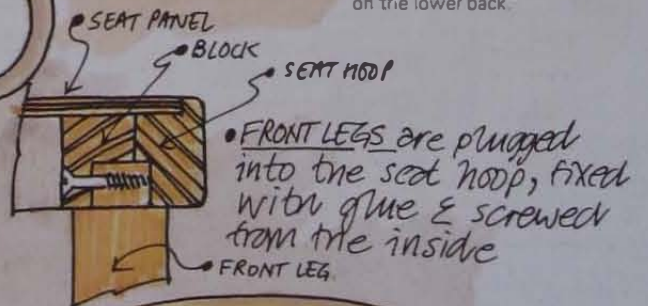 on the lower back.
• SEAT PANEL
• BLOCK
• SEAT HOOP
• FRONT LEGS are plugged
into the seat hoop, fixed
with glue & screwed
from the inside
• FRONT LEG